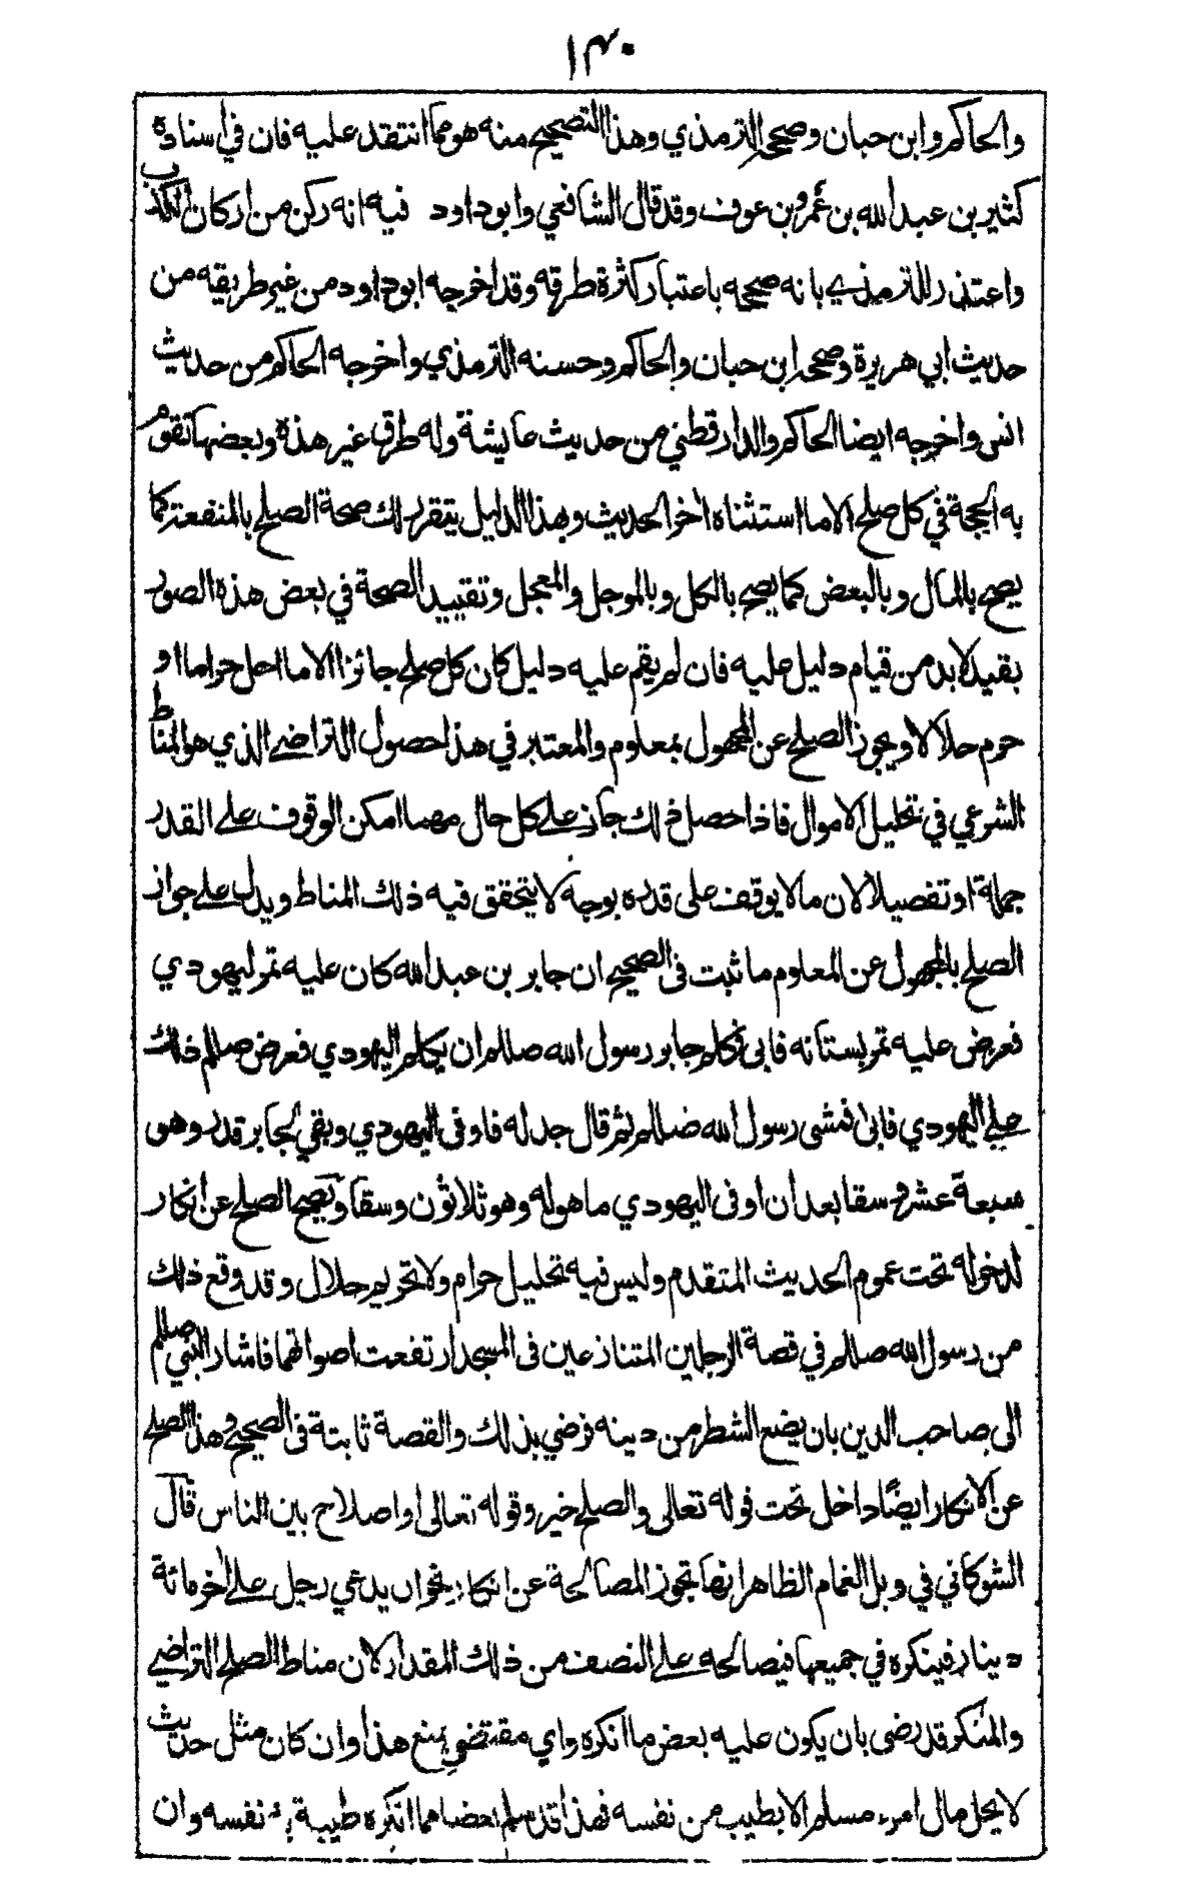 ١٣٠
والحاكم وابن حبان وصححه الترمذي وهذا التصحيح منه هو مما انتقد عليه فان في اسناده
كثير بن عبد الله بن عمرو بن عوف وقد قال الشافعي وابو داود فيه انه ركن من اركان الكذب
واعتذر للترمذي بانه صححه باعتبار كثرة طرقه وقد اخرجه ابو داود من غير طريقه من
حديث ابي هريرة وصححه ابن حبان والحاكم وحسنه الترمذي واخرجه الحاكم من حديث
انس واخرجه ايضا الحاكم والدارقطني من حديث عايشة وله طرق غير هذه وبعضها تقوم
به الحجة في كل صلح الا ما استثناه اخر الحديث وبهذا الدليل يتقرر لك صحة الصلح بالمنفعة كما
يصح بالمال وبالبعض كما يصح بالكل وبالموجل والمعجل وتقييد الصحة في بعض هذه الصور
بقيد لا بد من قيام دليل عليه فان لم يقم عليه دليل كان كل صلح جائزا الا ما احل حراما او
حرم حلالا ويجوز الصلح عن المجهول بمعلوم والمعتبر في هذا حصول التراضي الذي هو المناط
الشرعي في تحليل الاموال فاذا حصل ذلك جاز على كل حال مهما امكن الوقوف على القدر
جملة او تفصيلا لان ما لا يوقف على قدره بوجه لا يتحقق فيه ذلك المناط ويدل على جواز
الصلح بالمجهول عن المعلوم ما ثبت فى الصحيح ان جابر بن عبد الله كان عليه تمر ليهودي
فعرض عليه تمر بستانه فابى فكلم جابر رسول الله صللم ان يكلم اليهودي فعرض صللم ذلك
على اليهودي فابى فمشى رسول الله صللم ثم قال جد له فاوفى اليهودي وبقي لجابر قدر وهو
سبعة عشر وسقا بعد ان اوفى اليهودي ما هو له وهو ثلاثون وسقا ويصح الصلح عن انكار
لدخوله تحت عموم الحديث المتقدم وليس فيه تحليل حرام ولا تحريم حلال وقد وقع ذلك
من رسول الله صللم في قصة الرجلين المتنازعين فى المسجد ارتفعت اصواتهما فاشار النبي صللم
الى صاحب الدين بان يضع الشطر من دينه فرضي بذلك والقصة ثابتة فى الصحيح وهذا الصلح
عن الانكار ايضًا داخل تحت قوله تعالى والصلح خير وقوله تعالى او اصلاح بين الناس قال
الشوكاني في وبل الغمام الظاهر انها تجوز المصالحة عن انكار نحو ان يدعي رجل على اخر مائة
دينار فينكره في جميعها فيصالحه على النصف من ذلك المقدار لان مناط الصلح التراضي
والمنكر قد رضى بان يكون عليه بعض ما انكره واي مقتضي يمنع هذا وان كان مثل حديث
لا يحل مال امرء مسلم الا بطيب من نفسه فهذا قد سلم بعضا مما انكره طيبة به نفسه وان